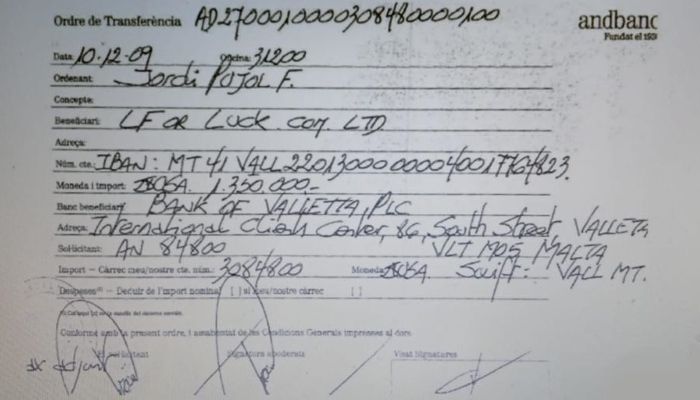 Ordre de Transferència AD2700010000308480000100
andbanc
Fundat el 193
Data: 10-12-09 Oficina: 31200
Ordenant: Jordi Pujol F.
Concepte:
Beneficiari: LF OR LUCK COM. LTD
Adreça:
Núm. cte.: IBAN: MT 41 VALL 22013000000040017164823.
Moneda i import: 1.350.000.-
Banc beneficiari: BANK OF VALLETTA, PLC
Adreça: International Clients Center, 86, South Street, VALLETA
Sol·licitant: AN 84800 VLT MALTA
Import – Càrrec meu/nostre cte. núm.: 3084800 Moneda: Swift: VALL MT.
Despeses(1) – Deduir de l'import nominal [ ] si meu/nostre càrrec [ ]
Conforme amb la present ordre, i assabentat de les Condicions Generals impreses al dors
El sol·licitant Signatura apoderats Visat Signatures